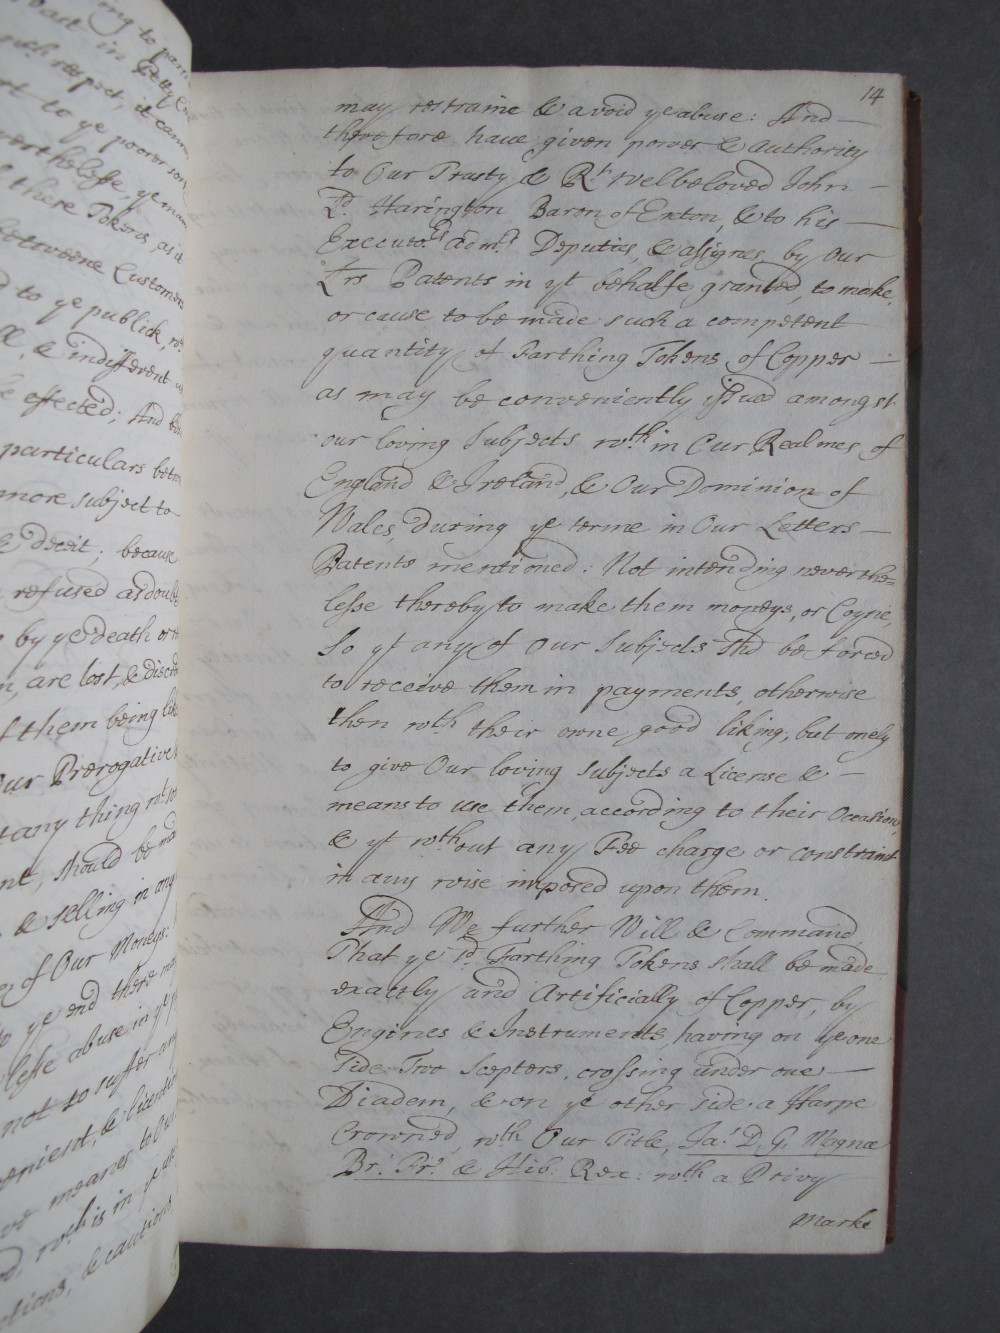 14
may restraine & avoid ye abuse: And
therefore have given power & authority
to Our Trusty & Rt. welbeloved John
Ld. Harington Baron of Exton, & to his
Executo.rs adm.rs Deputies, & assignes, by Our
Lrs Patents in yt behalfe granted, to make,
or cause to be made such a competent
quantity of Farthing Tokens of Copper
as may be conveniently issued amongst
our loving Subjects wth in Our Realmes of
England & Ireland, & Our Dominion of
Wales, during ye terme in Our Letters
Patents mentioned: Not intending neverthe=
lesse thereby to make them moneys, or Coyne,
So yt any of Our Subjects shd be forced
to receive them in payments, otherwise
then wth their owne good liking, but onely
to give Our loving Subjects a License &
means to use them, according to their Occasions,
& yt wth out any Fee charge or constraint
in any wise imposed upon them.
And We further Will & Command,
That ye sd. Farthing Tokens shall be made
exactly and Artificially of Copper, by
Engines & Instruments, having on ye one
side, Two Scepters, crossing under one
Diadem, & on ye other side a Harpe
Crowned, wth Our Title, Ja: D. G. Magnæ
Br: Fr: & Hib: Rex: wth a Privy
marke
ring to
wth respect, it cann
rt to ye poorer sor
vertheless, ye man
these Tokens, as it
betweene Customer
d to ye publick, wt
ll, & indifferent
be effected; And
particulars betw
more subject to
& deceit; because
refused as doubt
by ye death or
n, are lost, & discre
f them being like
Our Prerogative,
t any thing wt so
nt, should be mad
& selling in any
of Our Moneys:
to ye end there may
lesse abuse in ye
not to suffer any
venient, & licentio
ve meanes to Our
d, wch is in ye
ctions, & cautions,